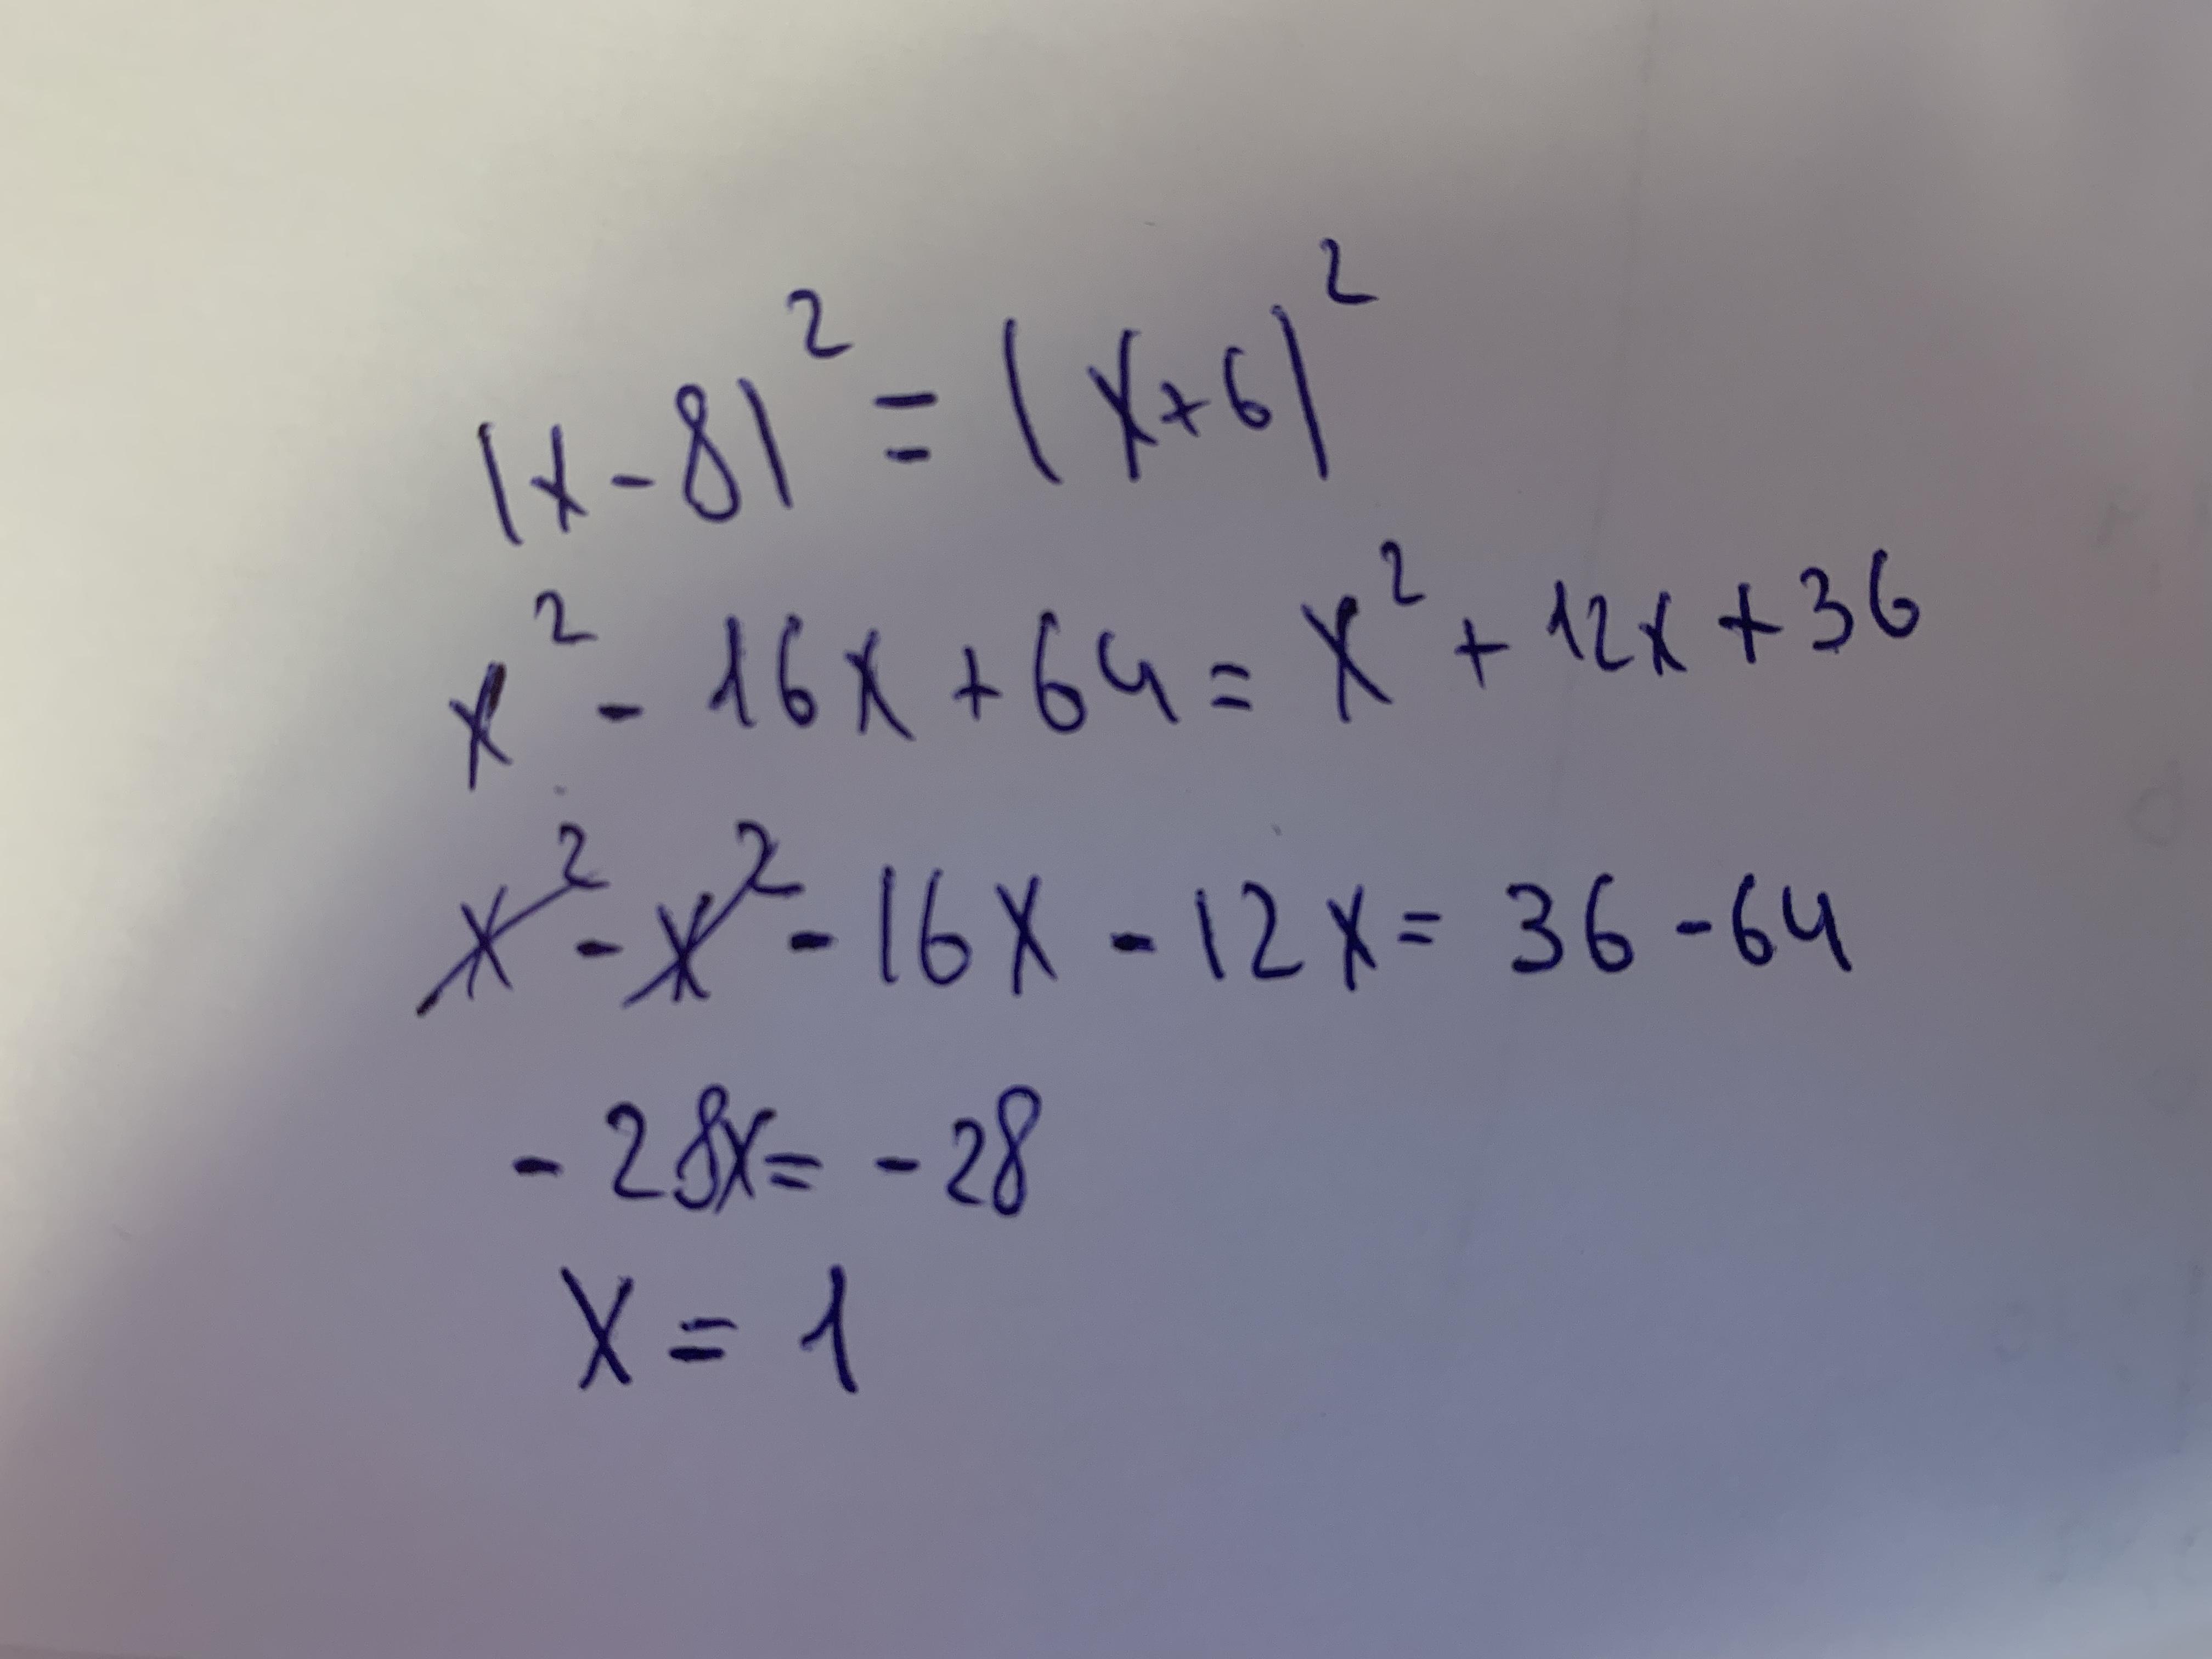 |x-8|² = |x+6|²
x² - 16x + 64 = x² + 12x + 36
x² - x² - 16x - 12x = 36 - 64
- 28x = - 28
x = 1